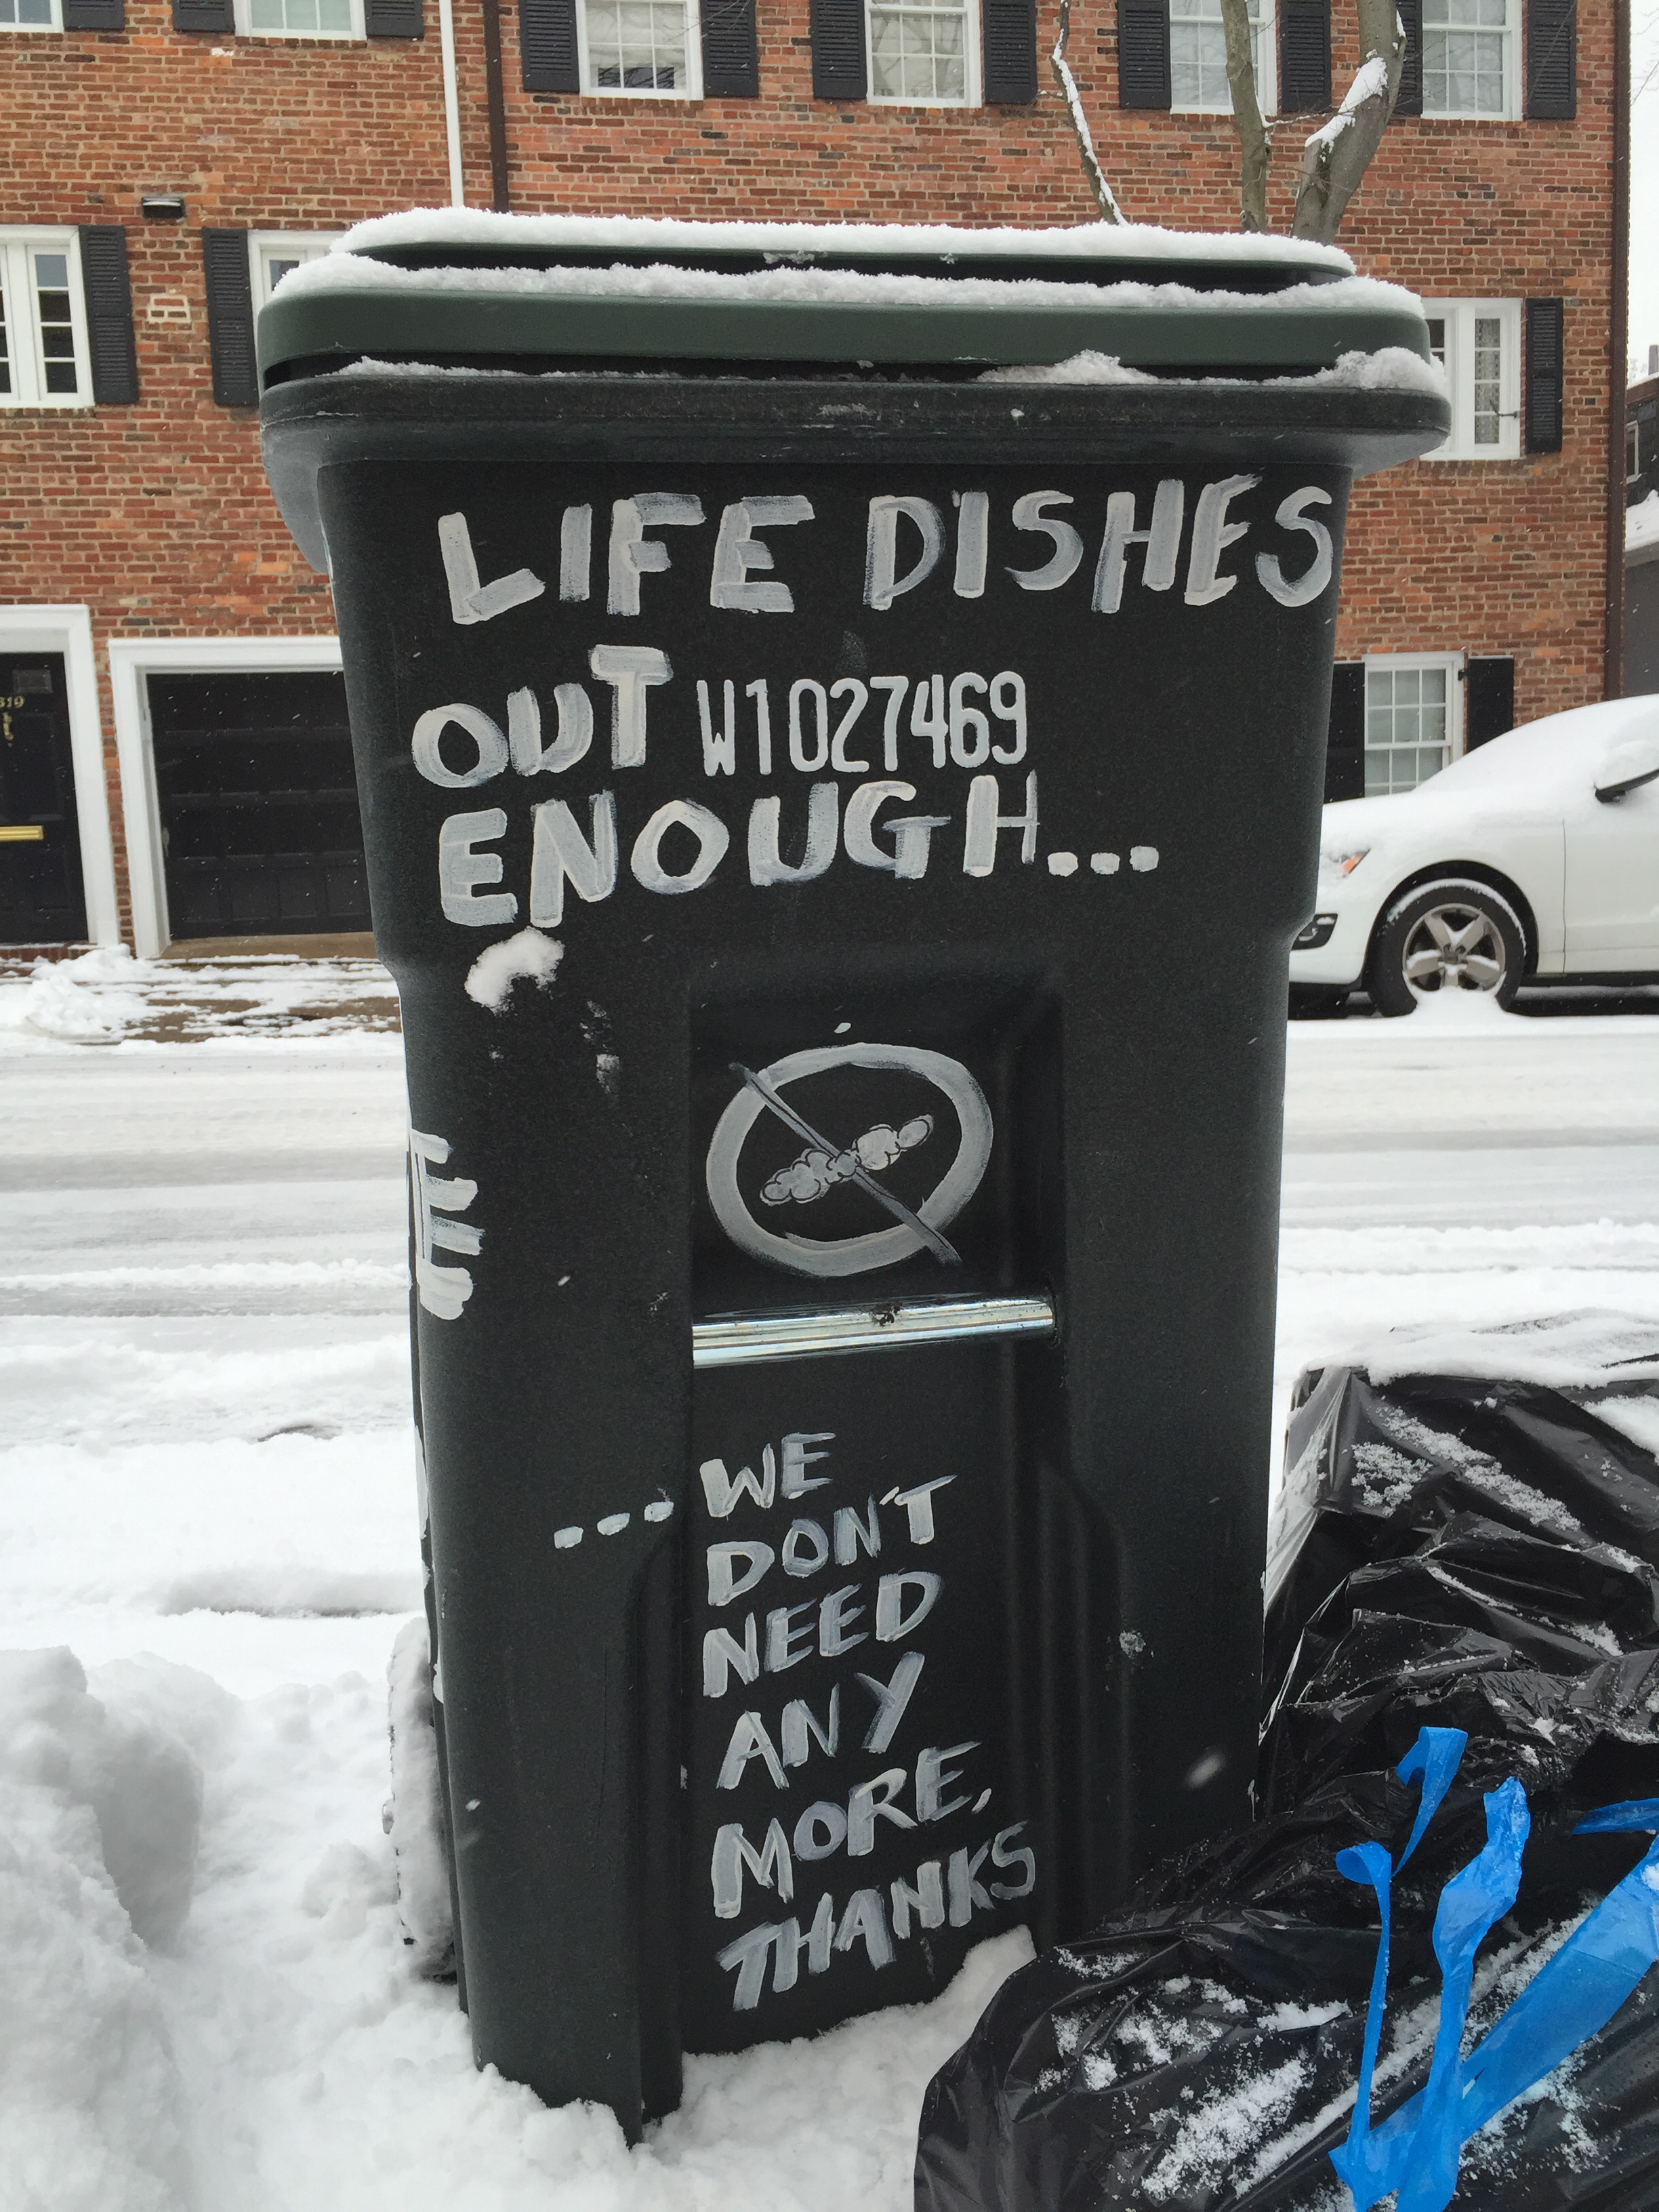 LIFE DISHES
OUT W1027469
ENOUGH...
...WE
DON'T
NEED
ANY
MORE,
THANKS